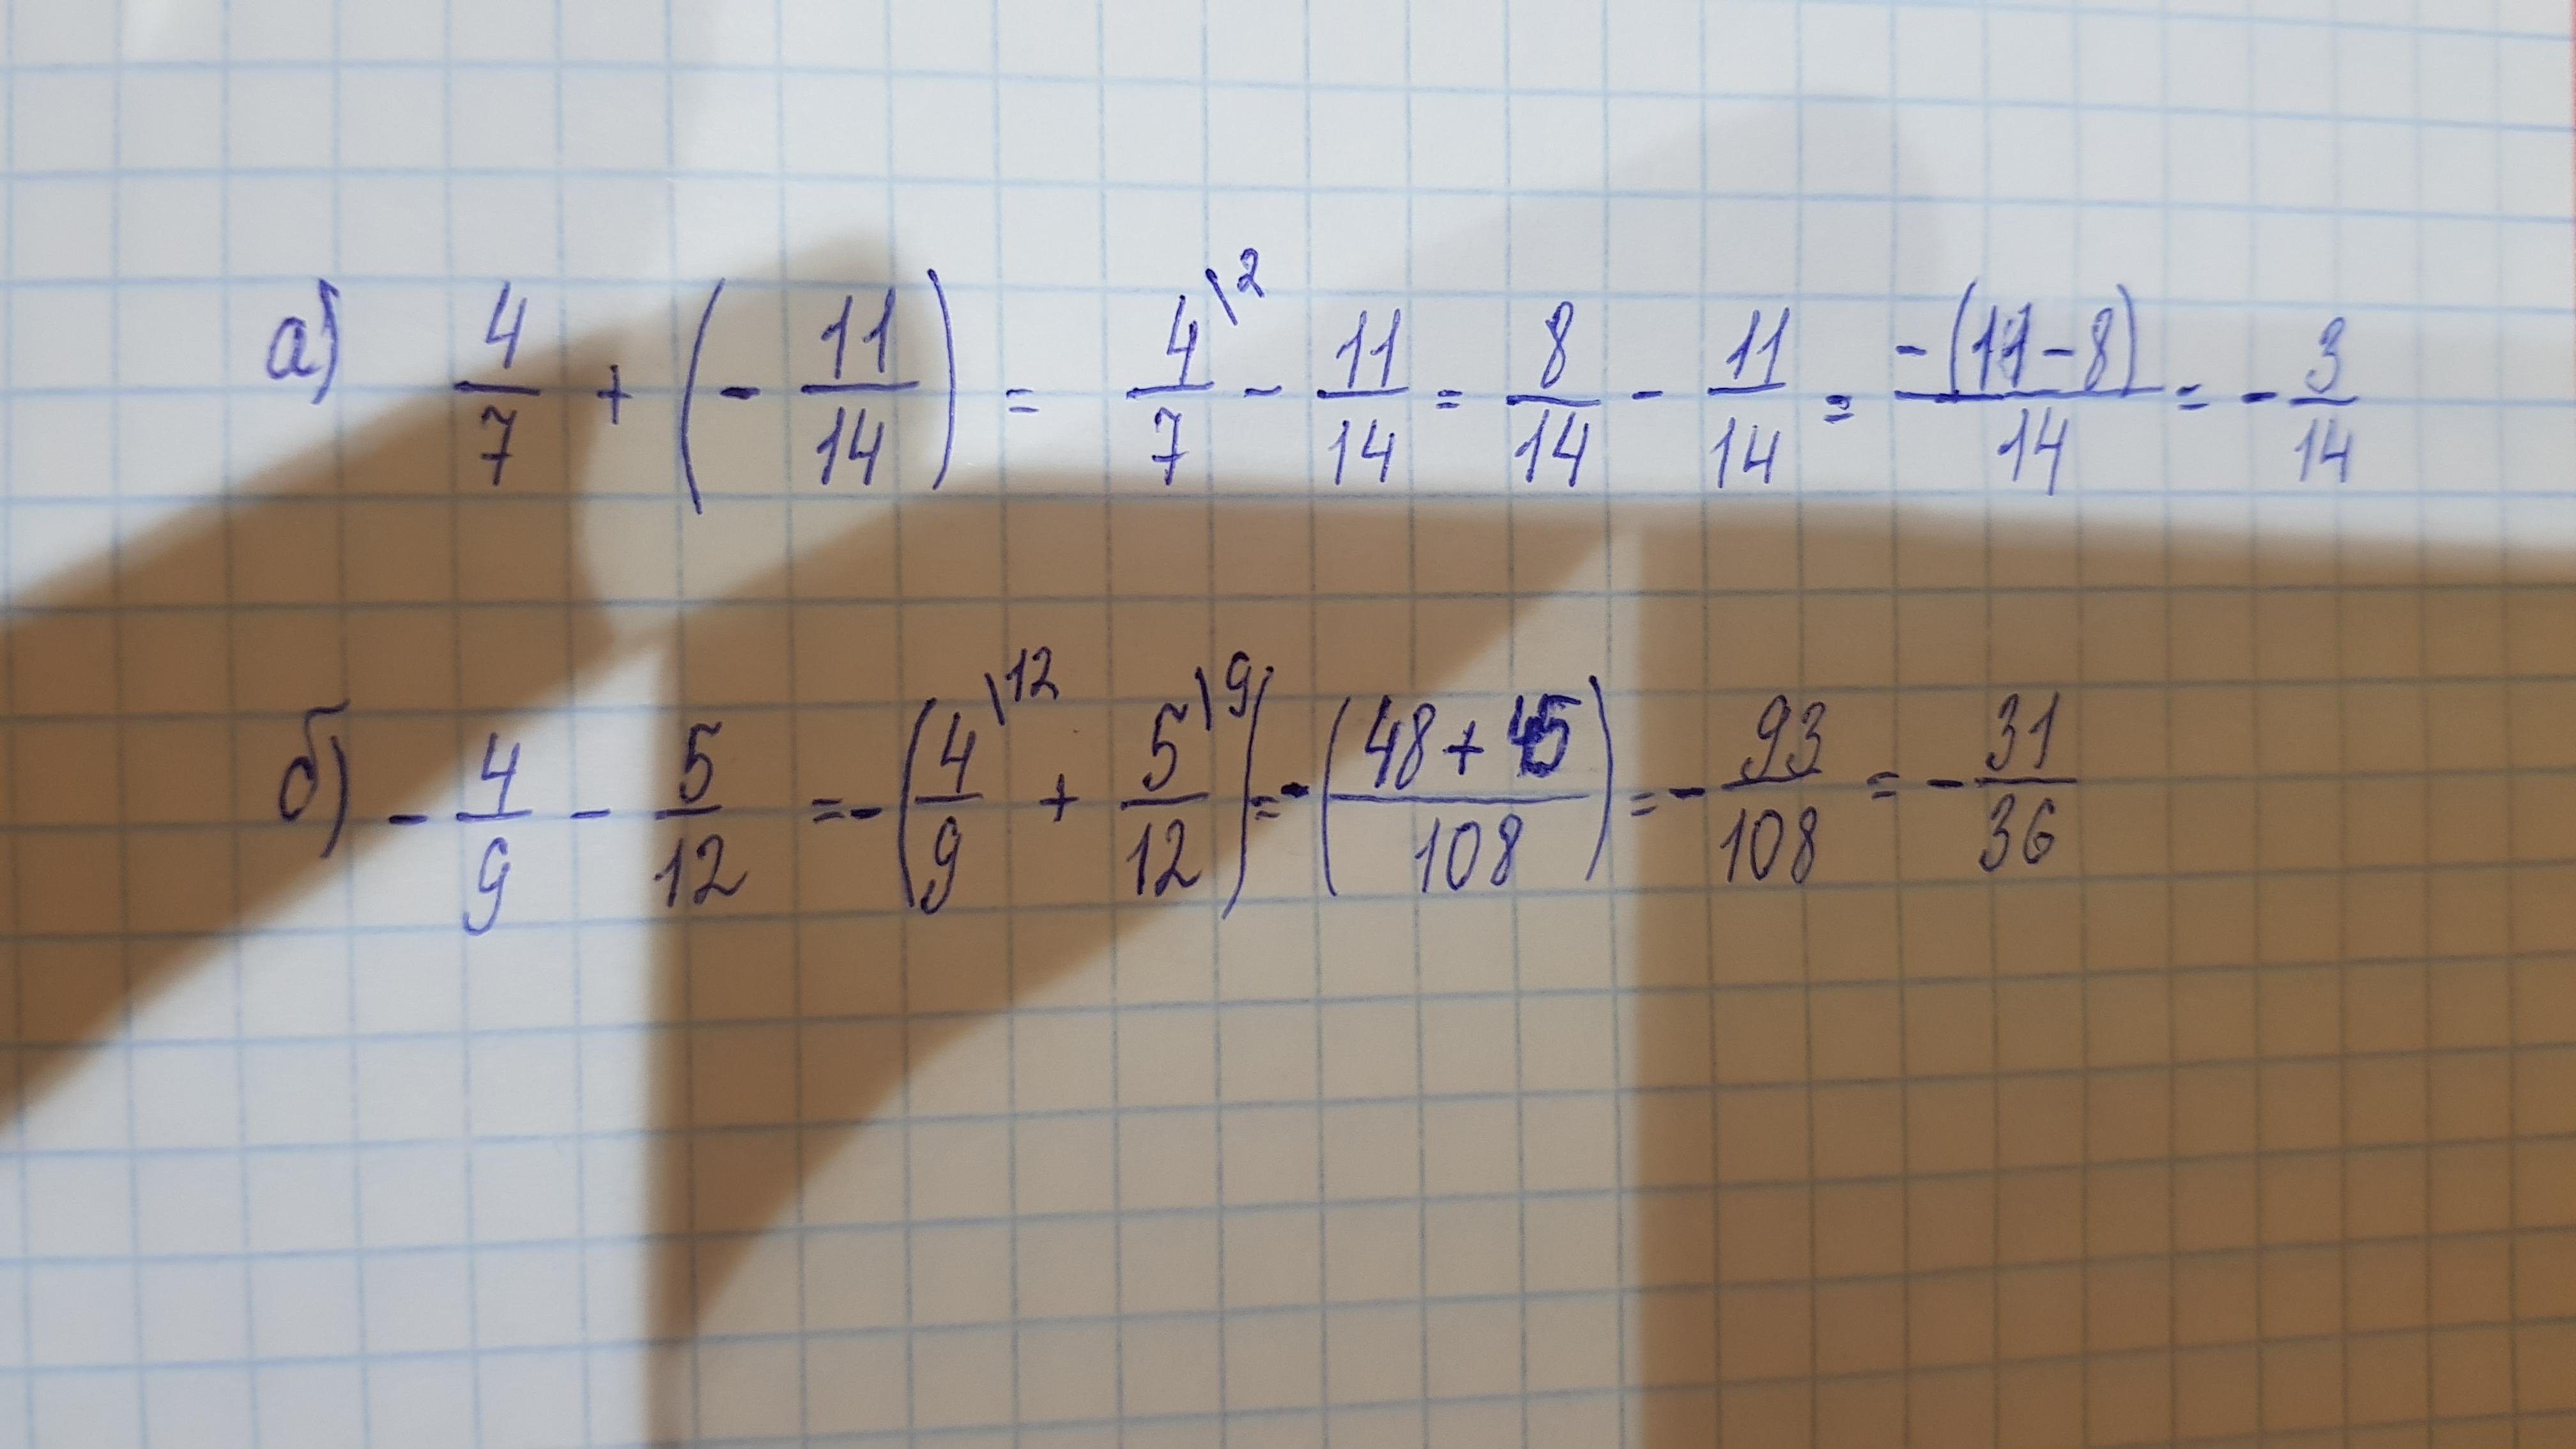 а) 4/7 + (- 11/14) = 4\2/7 - 11/14 = 8/14 - 11/14 = -(11-8)/14 = - 3/14
б) - 4/9 - 5/12 = -(4\12/9 + 5\9/12) = -(48+45/108) = - 93/108 = - 31/36